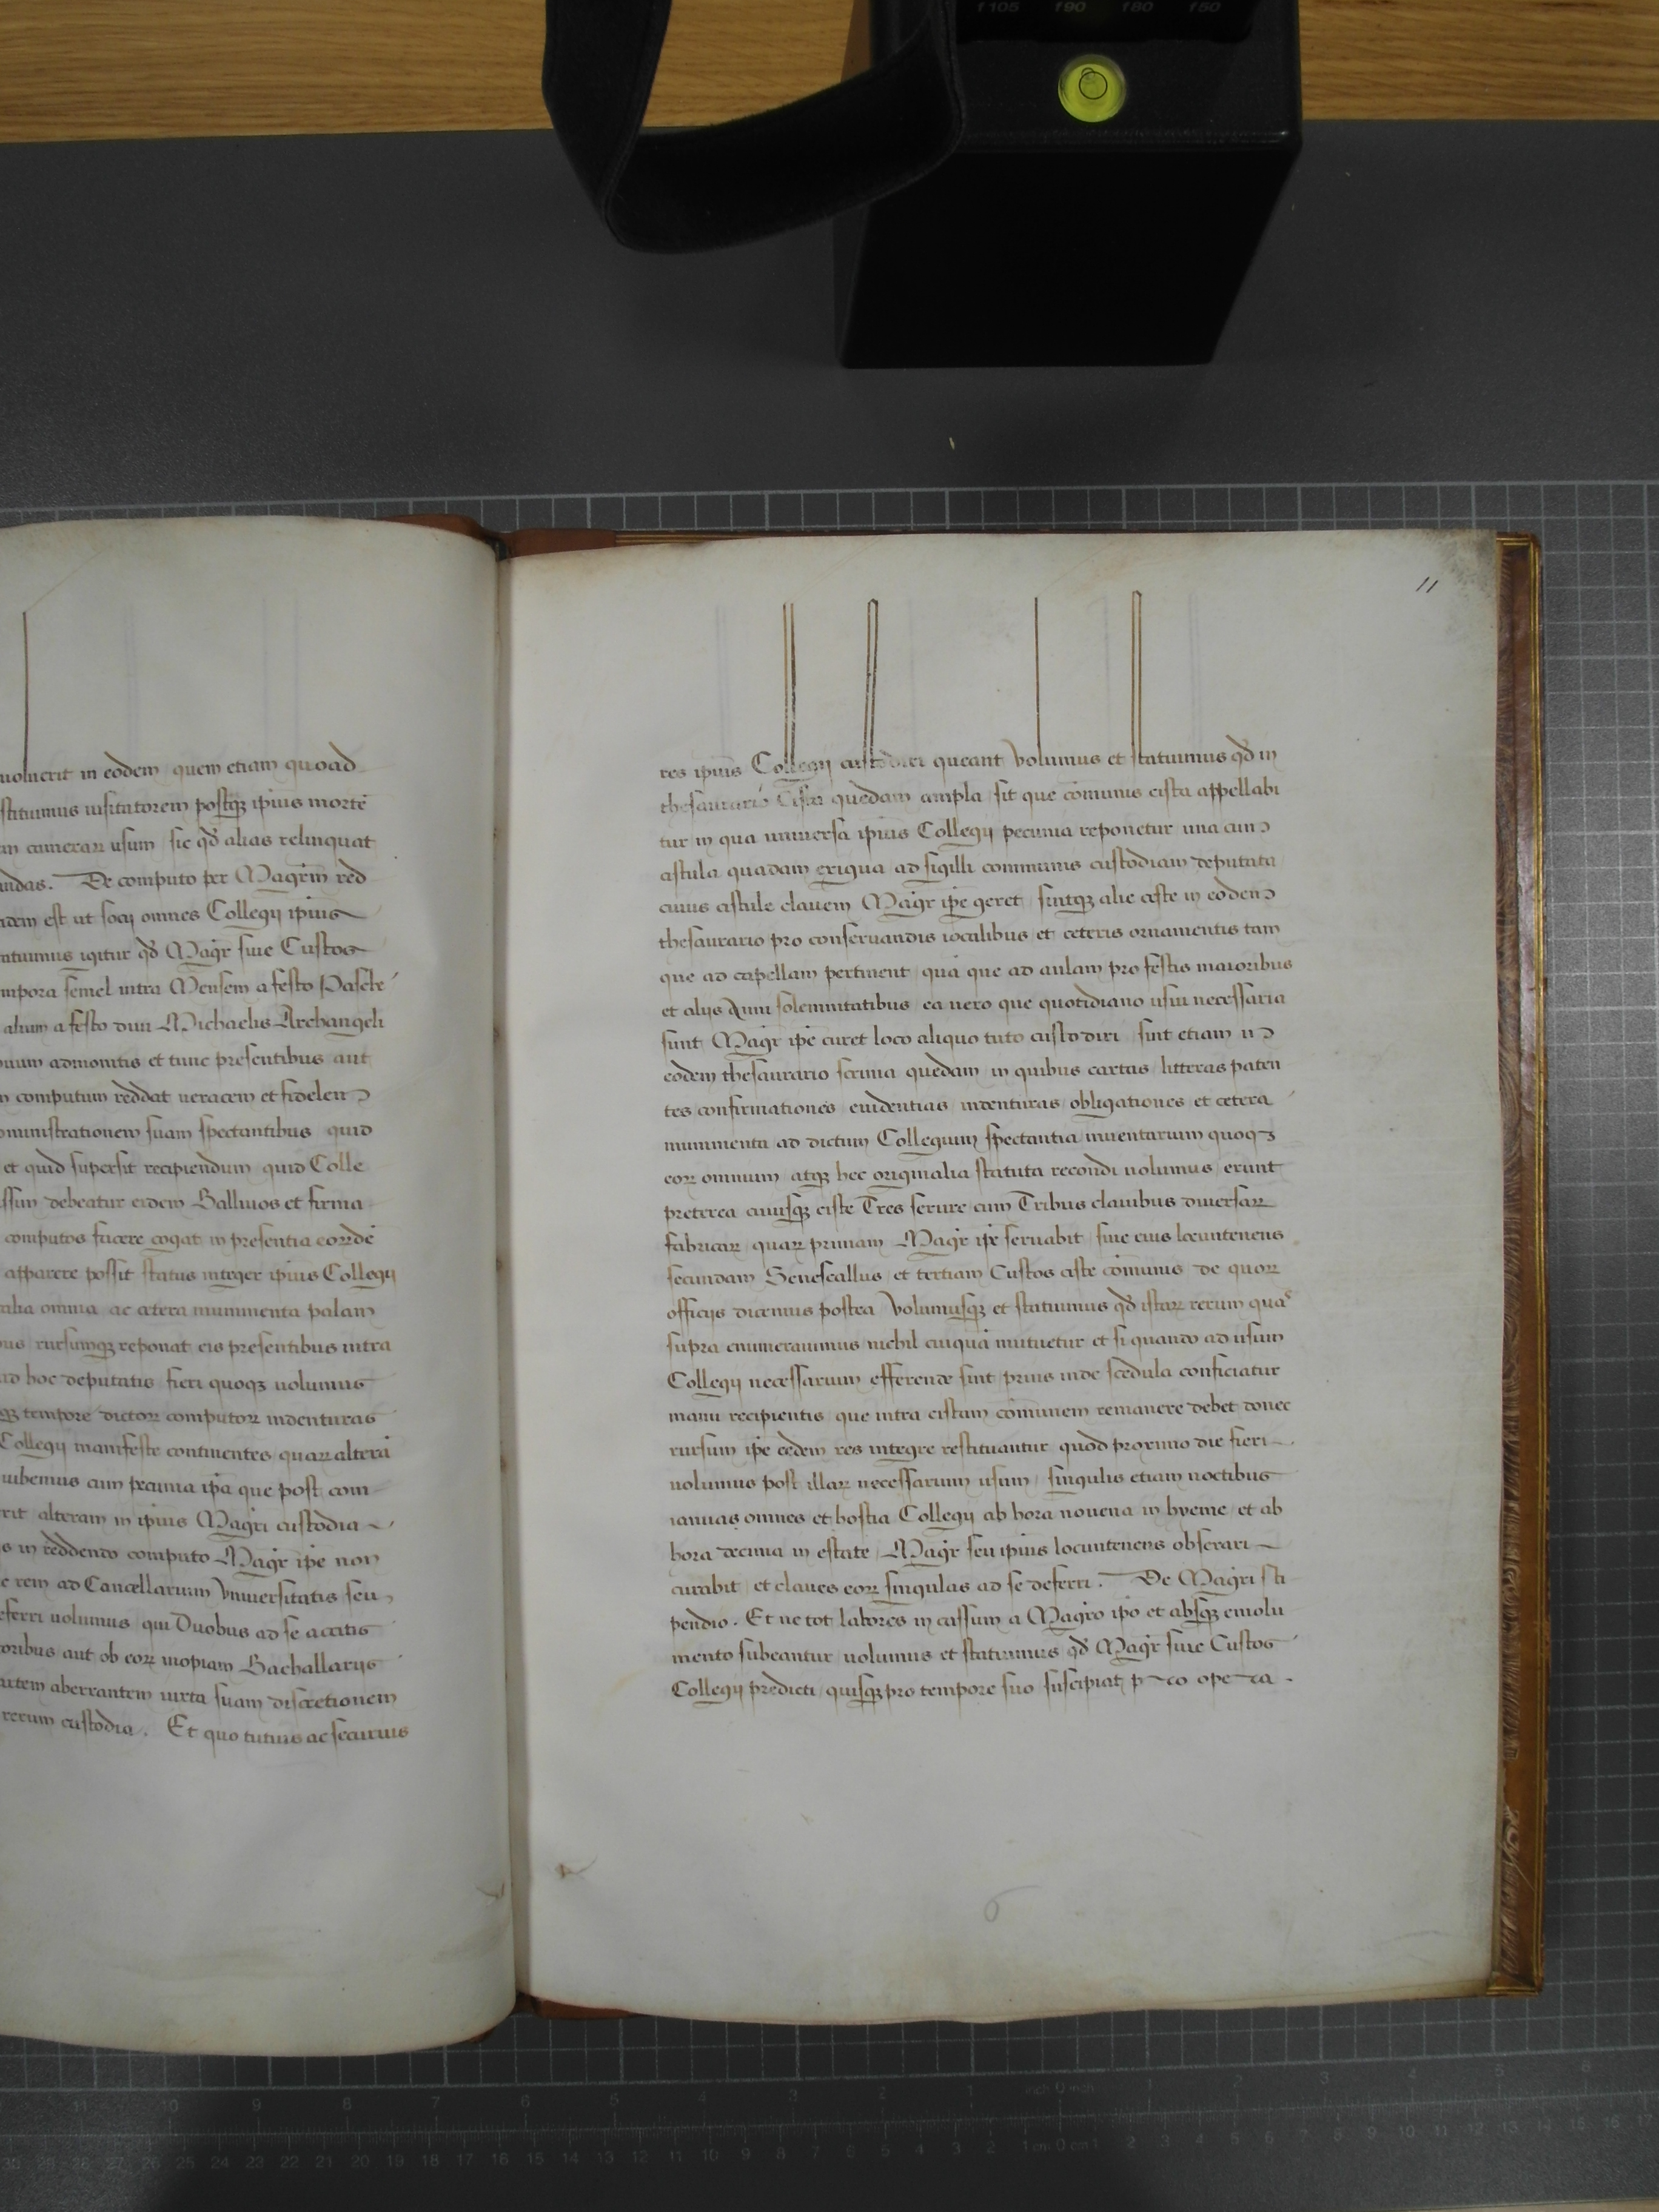 f105 f90 f80 f50
uoluerit in eodem quem etiam quoad
stituimus uisitatorem postqʒ ipius morte
camerarꝝ usum sic qd alias relinquat
De computo per Magrm red
est ut socij omnes Collegij ipius
igitur qd Magr siue Custos
semel intra Mensem a festo Pasche
alium a festo diui Michaelis Archangeli
admonitis et tunc presentibus aut
computum reddat ueracem et fidelem
suam spectantibus quid
et quid supersit recipiendum quid Colle
debeatur eidem Balliuos et firma
computos facere cogat in presentia eorūde
apparere possit status integer ipius Collegij
omnia ac cetera munimenta palam
rursumqʒ reponat eis presentibus intra
hoc deputatis fieri quoqʒ uolumus
tempore dictorꝝ computorꝝ indenturas
Collegij manifeste continentes quarꝝ altera
iubemus cum pecunia ipa que post com
alteram in ipius Magri custodia
in reddendo computo Magr ipe non
rem ad Cancellarium Vniuersitatis seu
uolumus qui Duobus ad se accitis
aut ob eorꝝ inopiam Bachallarijs
aberrantem iuxta suam discretionem
rerum custodia. Et quo tutius ac securius
11
res ipius Collegij custodiri queant Volumus et statuimus qd in
thesaurario Cista quedam ampla sit que comunis cista appellabi
tur in qua uniuersa ipius Collegij pecunia reponetur una cum
cistula quadam exigua ad sigilli communis custodiam deputata
cuius cistule clauem Magr ipe geret sintqʒ alie ciste in eodem
thesaurario pro conseruandis iocalibus et ceteris ornamentis tam
que ad capellam pertinent quā que ad aulam pro festis maioribus
et alijs Anni solemnitatibus ea uero que quotidiano usui necessaria
sunt Magr ipe curet loco aliquo tuto custodiri sint etiam in
eodem thesaurario scrinia quedam in quibus cartas litteras paten
tes confirmationes euidentias indenturas obligationes et cetera
munimenta ad dictum Collegium spectantia inuentarium quoqʒ
eorꝝ omnium atqʒ hec originalia statuta recondi uolumus erunt
preterea cuiusqʒ ciste Tres serure cum Tribus clauibus diuersarꝝ
fabricarꝝ quarꝝ primam Magr ipe seruabit siue eius locumtenens
secundam Senescallus et tertiam Custos ciste cōmunis de quorꝝ
officijs dicemus postea Volumusqʒ et statuimus qd istarꝝ rerum quas
supra enumerauimus nichil cuiquā mutuetur et si quando ad usum
Collegij necessarium efferende sint prius inde scedula conficiatur
manu recipientis que intra cistam cōmunem remanere debet donec
rursum ipe eedem res integre restituantur quod proximo die fieri
uolumus post illarꝝ necessarium usum singulis etiam noctibus
ianuas omnes et hostia Collegij ab hora nouena in hyeme et ab
hora decima in estate Magr seu ipius locumtenens obserari
curabit et claues eorꝝ singulas ad se deferri. De Magri sti
pendio. Et ne tot labores in cassum a Magro ipo et absqʒ emolu
mento subeantur uolumus et statuimus qd Magr siue Custos
Collegij predicti quisqʒ pro tempore suo suscipiat
6
11 10 9 8 7 6 5 4 3 2 1 inch 0 inch 1 2 3 4 5 6
30 29 28 27 26 25 24 23 22 21 20 19 18 17 16 15 14 13 12 11 10 9 8 7 6 5 4 3 2 1 cm 0 cm 1 2 3 4 5 6 7 8 9 10 11 12 13 14 15 16 17